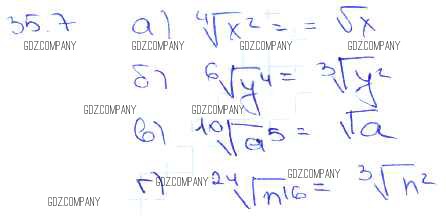 35.7 а) ⁴√x² = = √x
GDZ.COMPANY GDZ.COMPANY GDZ.COMPANY GDZ.COMPANY
б) ⁶√y⁴ = ³√y²
GDZ.COMPANY GDZ.COMPANY
в) ¹⁰√a⁵ = √a
GDZ.COMPANY GDZ.COMPANY GDZ.COMPANY
г) ²⁴√n¹⁶ = ³√n²
GDZ.COMPANY GDZ.COMPANY
GDZ.COMPANY